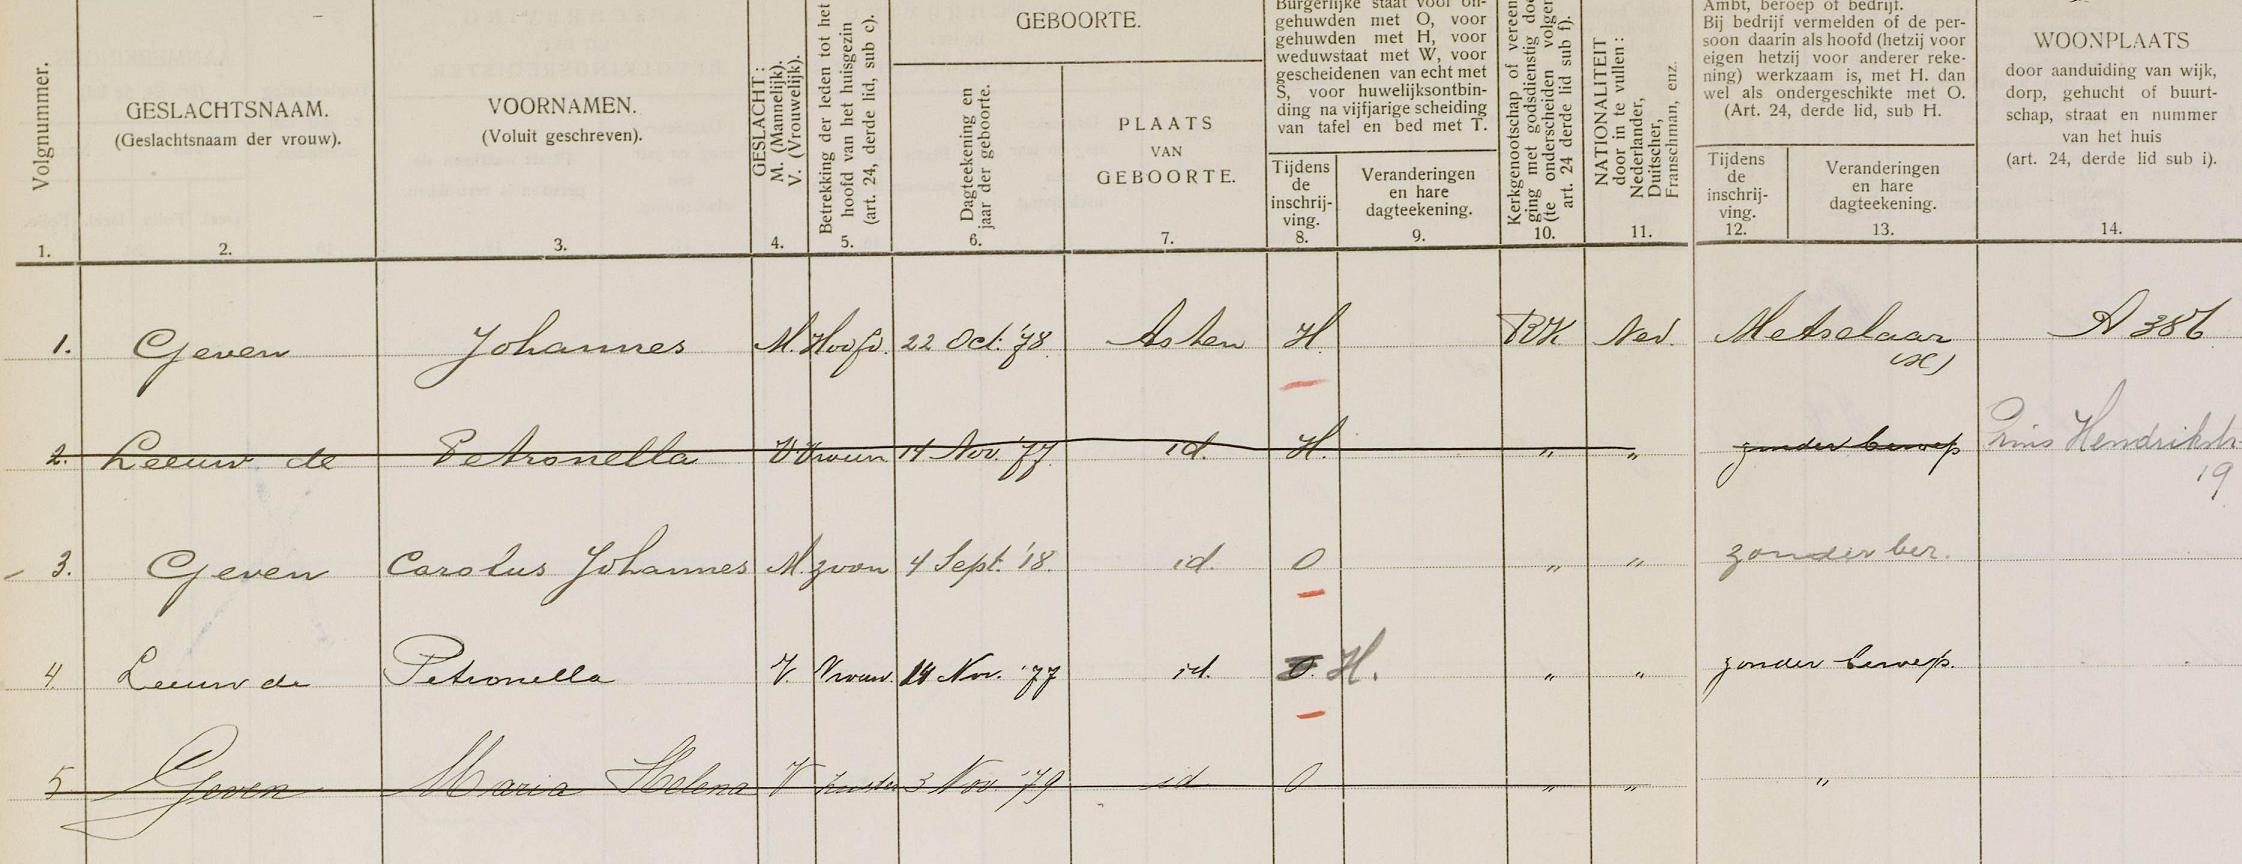 Volgnummer.
1.
GESLACHTSNAAM.
(Geslachtsnaam der vrouw).
2.
VOORNAMEN.
(Voluit geschreven).
3.
GESLACHT:
M. (Mannelijk).
V. (Vrouwelijk).
4.
Betrekking der leden tot het
hoofd van het huisgezin
(art. 24, derde lid, sub c).
5.
GEBOORTE.
Dagteekening en
jaar der geboorte.
6.
PLAATS
VAN
GEBOORTE.
7.
Burgerlijke staat voor on-
gehuwden met O, voor
gehuwden met H, voor
weduwstaat met W, voor
gescheidenen van echt met
S, voor huwelijksontbin-
ding na vijfjarige scheiding
van tafel en bed met T.
Tijdens
de
inschrij-
ving.
8.
Veranderingen
en hare
dagteekening.
9.
Kerkgenootschap of vereen
ging met godsdienstig doe
(te onderscheiden volgen
art. 24 derde lid sub f).
10.
NATIONALITEIT
door in te vullen:
Nederlander,
Duitscher,
Franschman, enz.
11.
Ambt, beroep of bedrijf.
Bij bedrijf vermelden of de per-
soon daarin als hoofd (hetzij voor
eigen hetzij voor anderer reke-
ning) werkzaam is, met H. dan
wel als ondergeschikte met O.
(Art. 24, derde lid, sub H.
Tijdens
de
inschrij-
ving.
12.
Veranderingen
en hare
dagteekening.
13.
WOONPLAATS
door aanduiding van wijk,
dorp, gehucht of buurt-
schap, straat en nummer
van het huis
(art. 24, derde lid sub i).
14.
1. Geven Johannes M. Hoofd. 22 Oct. '78 Asten H. RK Ned. Metselaar A 386
2. Leeuw de Petronella V Vrouw 14 Nov. '77 id. H. " " zonder beroep Prins Hendrikstr.
19
3. Geven Carolus Johannes M. zoon 4 Sept. '18. id. O " " zonder ber.
4. Leeuw de Petronella V. Vrouw. 14 Nov. '77 id. H. " " zonder beroep.
5 Geven Maria Helena V zuster 3 Nov. '79 id O " " "